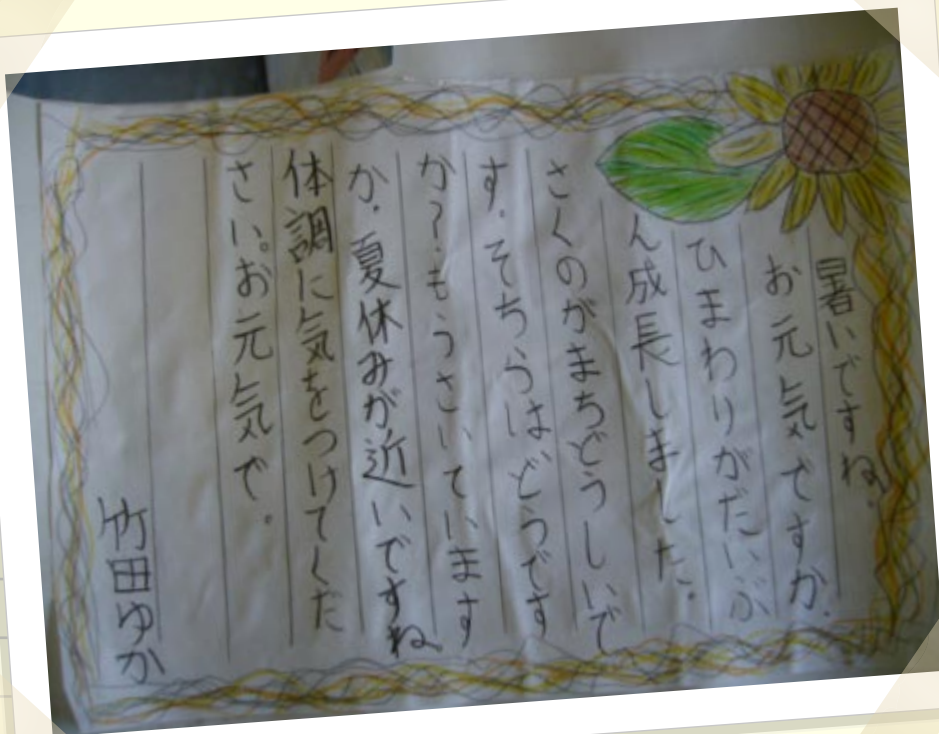 暑いですね。
お元気ですか。
ひまわりがだいぶ
ん成長しました。
さくのがまちどうしいで
す。そちらはどうです
か？もうさいています
か。夏休みが近いですね
体調に気をつけてくだ
さい。お元気で。
竹田ゆか